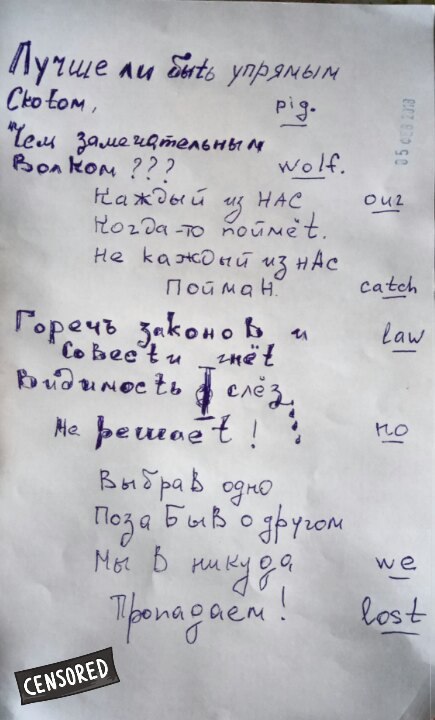 Лучше ли быть упрямым
Скотом, pig.
Чем замечательным
Волком ??? wolf.
Каждый из НАС our
Когда-то поймёт.
Не каждый из НАС
Пойман. catch
Горечь законов и law
Совести гнёт
Видимость слёз
Не решает! no
Выбрав одно
Позабыв о другом
Мы в никуда we
Пропадаем! lost
05 ФЕВ 2018
CENSORED